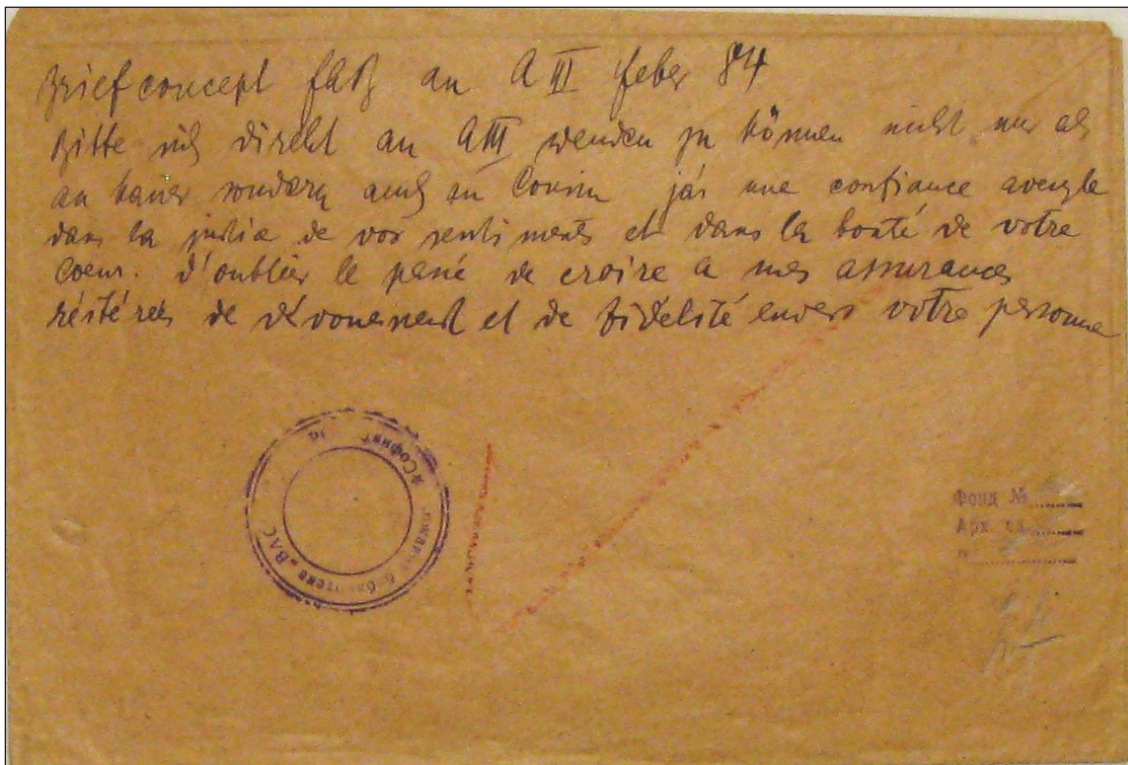 Briefconcept an A III feber 84
Bitte mich direkt an AIII wenden zu können nicht nur als
an sondern auch an Cousin j'ai une confiance aveugle
dans la justice de vos sentiments et dans la bonté de votre
coeur. d'oublier le passé de croire a mes assurances
réitérées de dévouement et de fidélité envers votre personne
Фонд №
Арх.